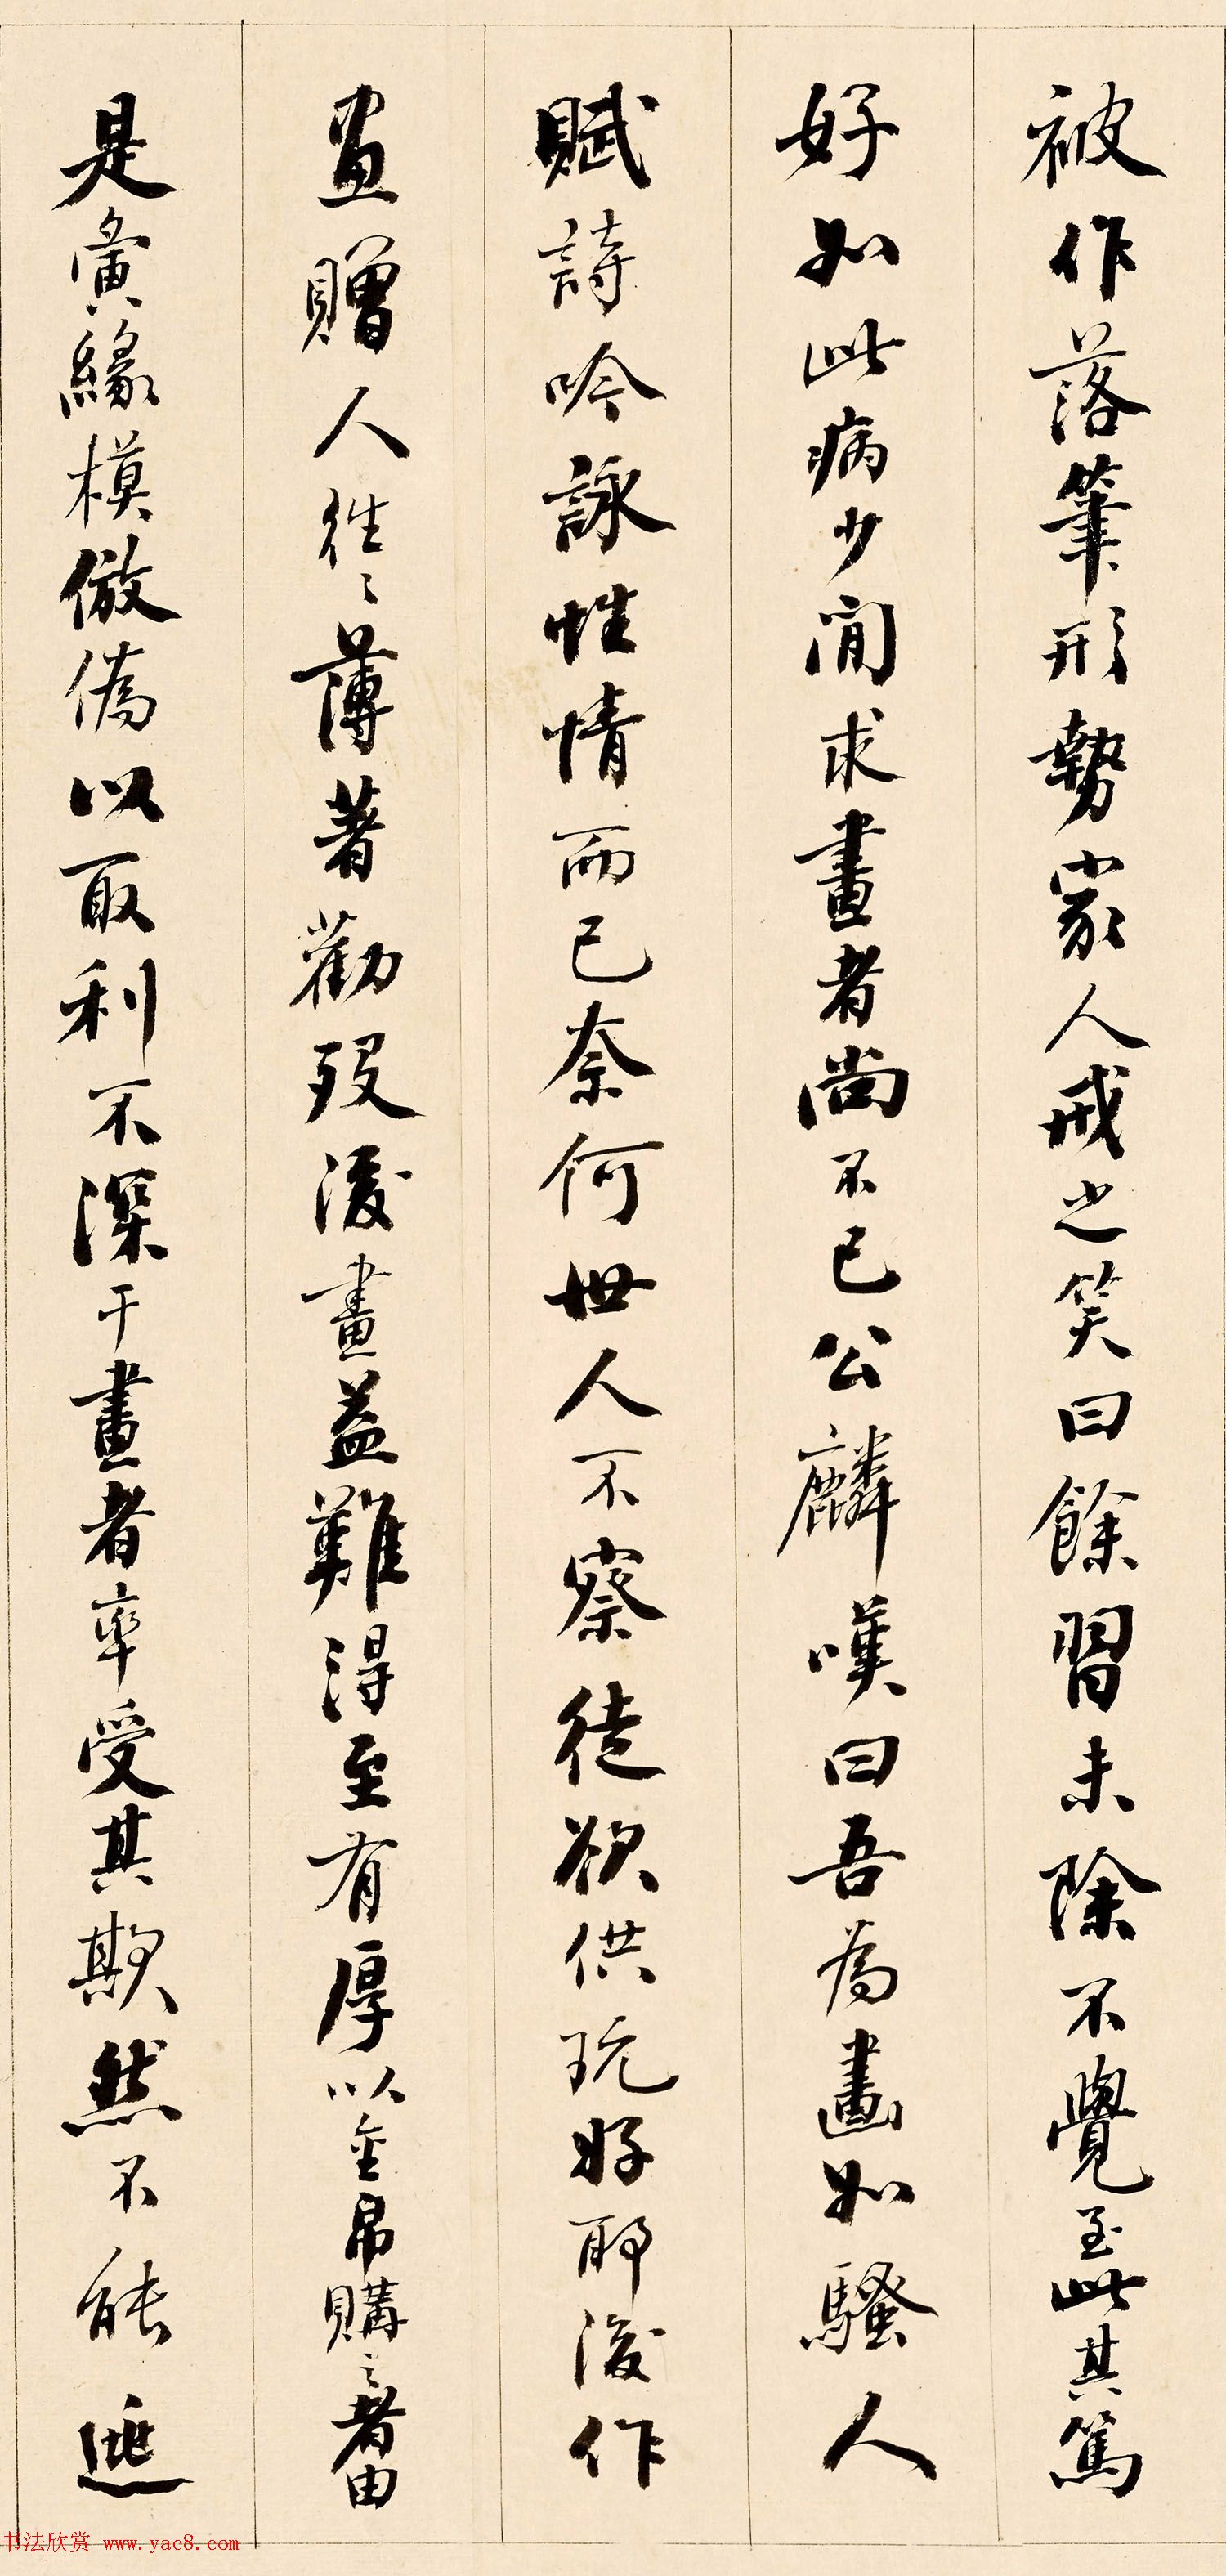 被作落筆形勢家人戒之笑曰餘習未除不覺至此其篤
好如此病少閒求畫者尚不已公麟嘆曰吾為畫如騷人
賦詩吟詠性情而已奈何世人不察徒欲供玩好耶後作
畫贈人往々薄著勸歿後畫益難得至有厚以金帛購之者由
是夤緣模倣偽以取利不深于畫者率受其欺然不能逃
书法欣赏 www.yac8.com